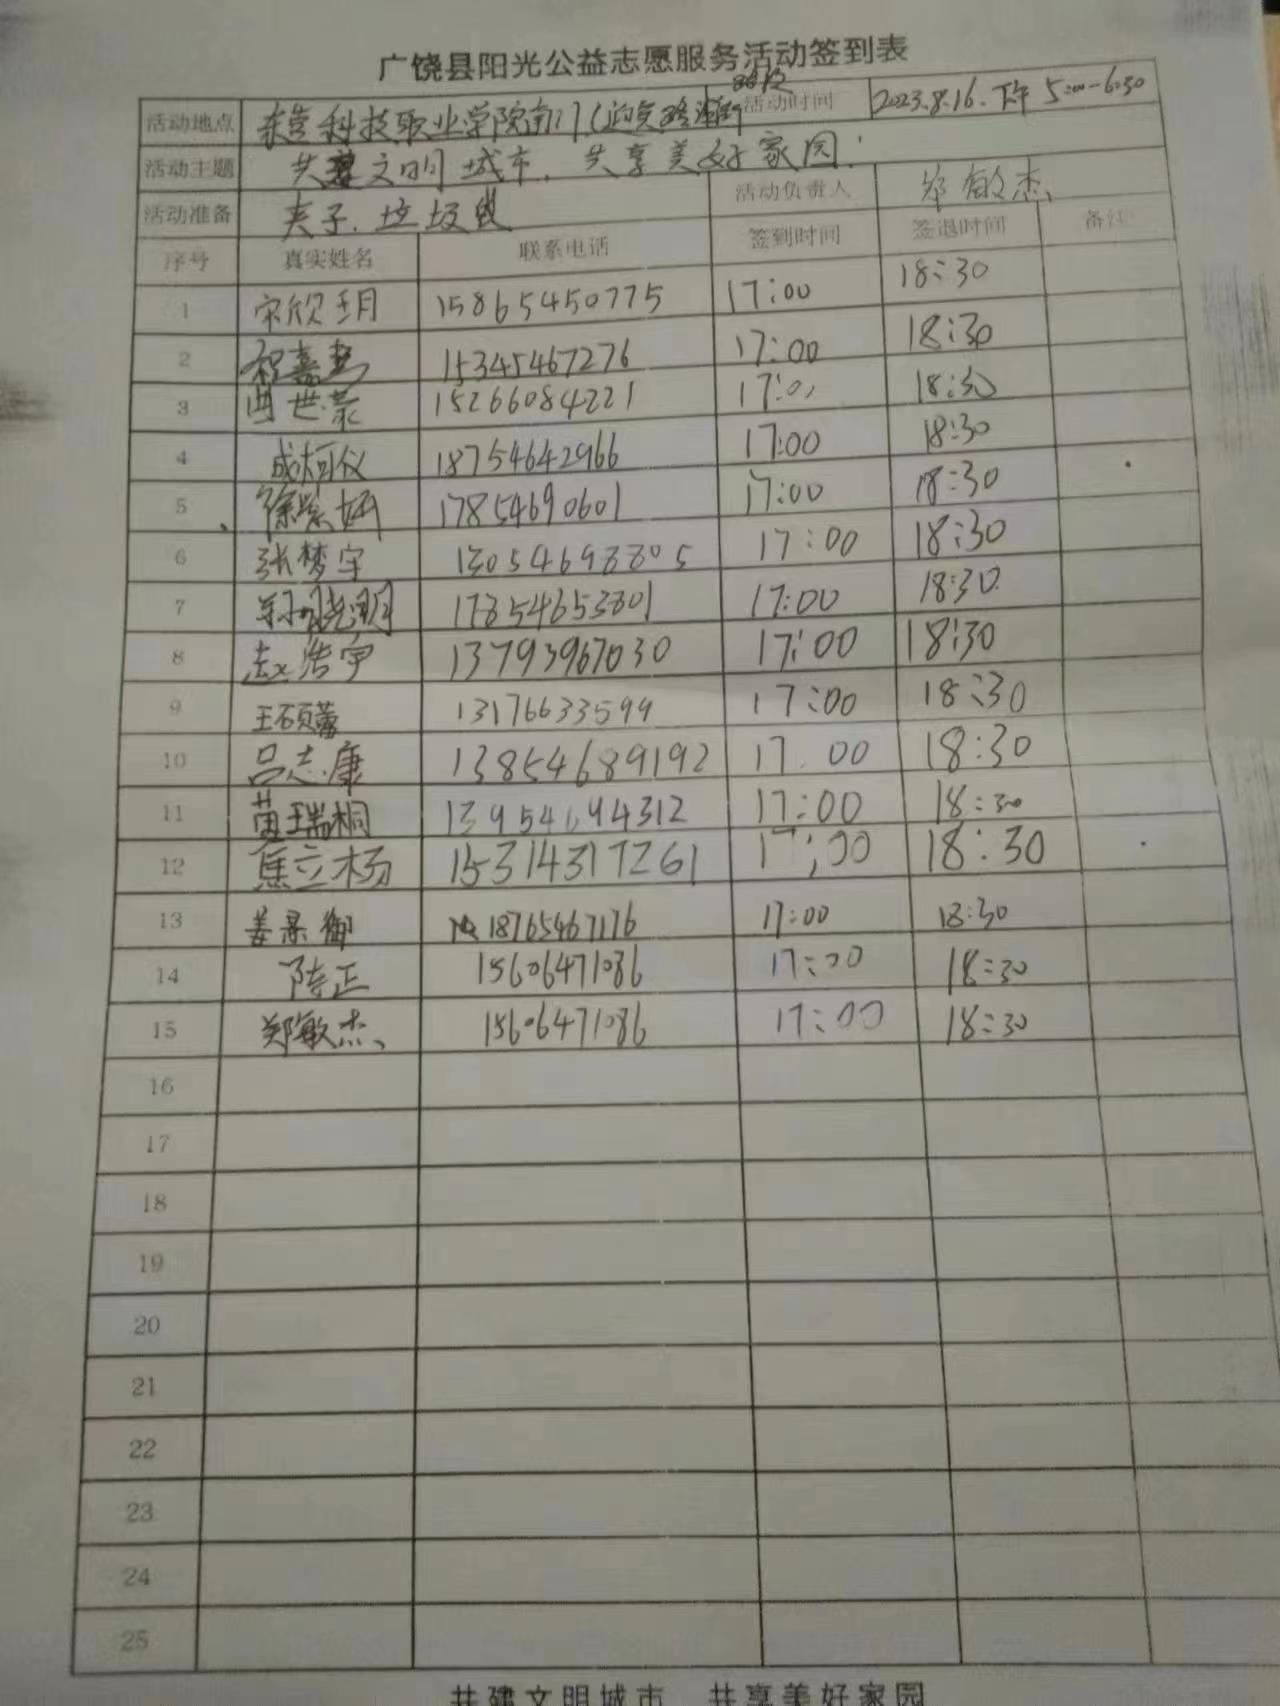 广饶县阳光公益志愿服务活动签到表
活动地点 东营科技职业学院南门(迎宾路 路段 活动时间 2023.8.16.下午5:00-6:30
活动主题 共建文明城市、共享美好家园.
活动准备 夹子.垃圾袋 活动负责人 郑敏杰
序号 真实姓名 联系电话 签到时间 签退时间 备注
1 宋欣玥 15865450775 17:00 18:30
2 祝嘉 15345467276 17:00 18:30
3 曲世荣 15266084221 17:00 18:30
4 成柯仪 18754642966 17:00 18:30
5 徐紫妍 17854690601 17:00 18:30
6 张梦宇 13054698805 17:00 18:30
7 17854653801 17:00 18:30
8 赵浩宇 13793967030 17:00 18:30
9 王硕蕾 13176633599 17:00 18:30
10 吕志康 13854689192 17:00 18:30
11 黄瑞桐 13954694312 17:00 18:30
12 焦立杨 15314317261 17:00 18:30
13 姜景御 18765467176 17:00 18:30
14 陈正 15606471086 17:00 18:30
15 郑敏杰 15606471086 17:00 18:30
16
17
18
19
20
21
22
23
24
25
共建文明城市 共享美好家园